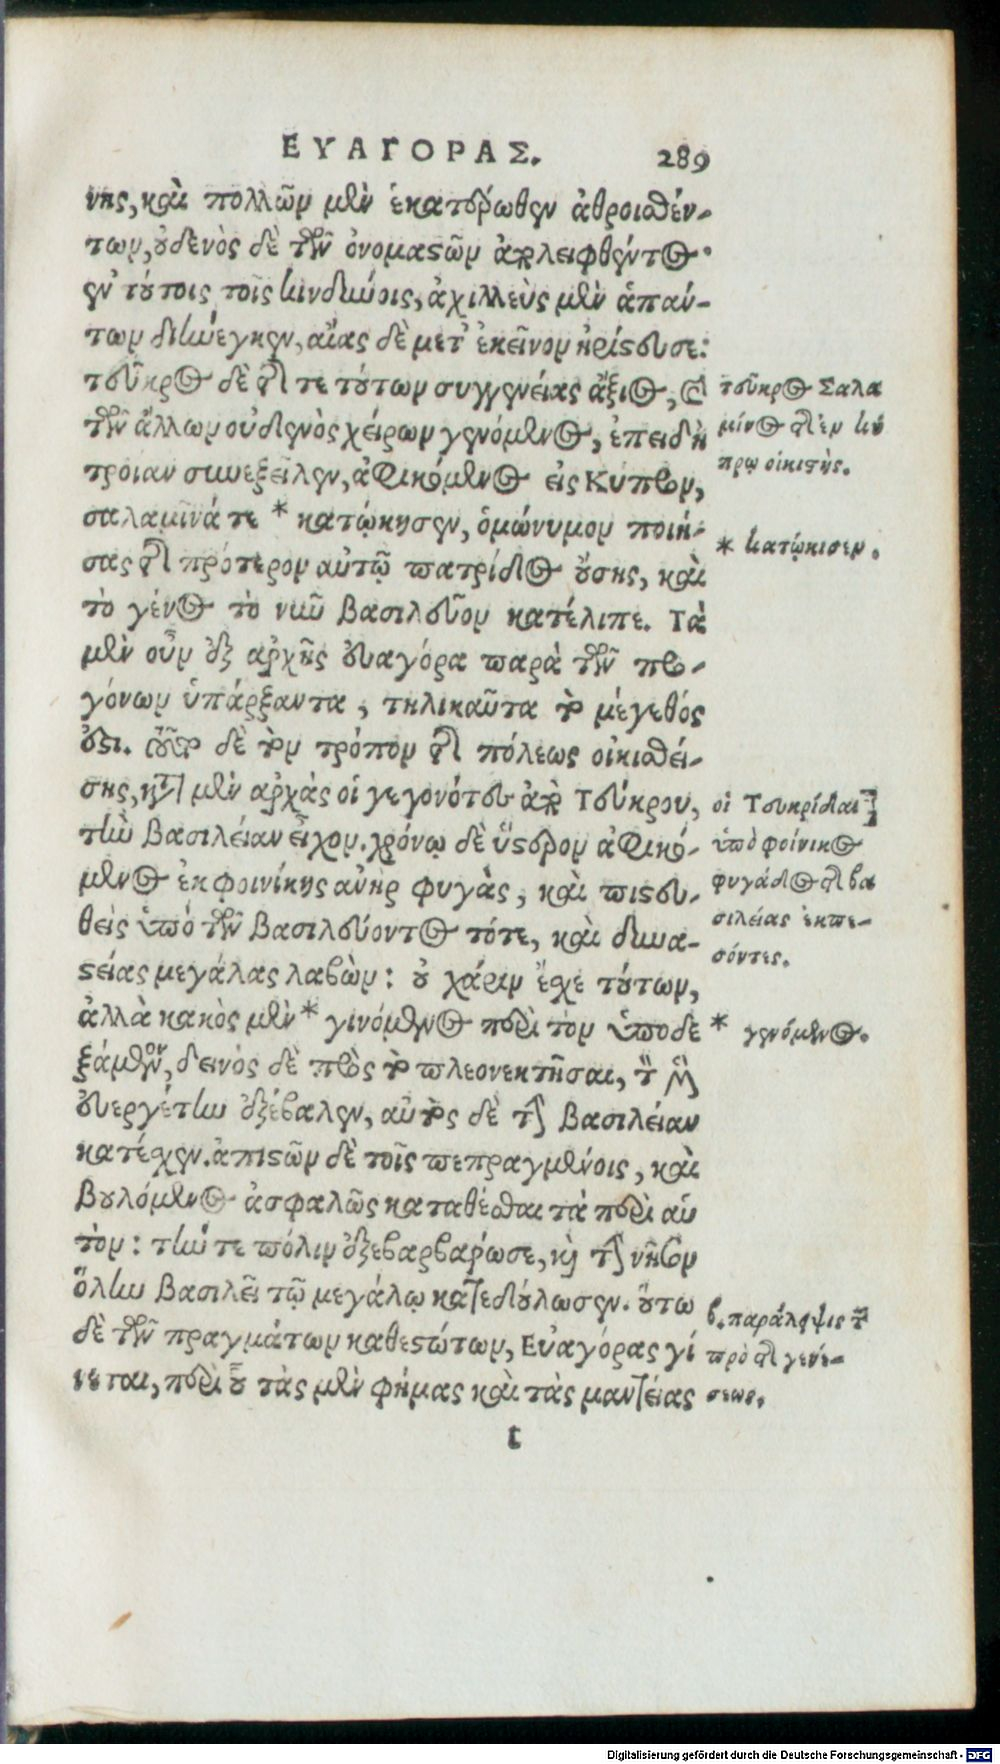 ΕΥΑΓΟΡΑΣ. 289
νης, καὶ πολλῶν μὲν ἑκατέρωθεν ἀθροισθέν-
των, οὐδενὸς δὲ τῶν ὀνομαστῶν ἀπολειφθέντος
ἐν τούτοις τοῖς κινδύνοις, ἀχιλλεὺς μὲν ἁπάν-
των διήνεγκεν, αἴας δὲ μετ' ἐκεῖνον ἠρίστευσε:
τεῦκρος δὲ τῆς τε τούτων συγγενείας ἄξιος, καὶ
τῶν ἄλλων οὐδενὸς χείρων γενόμενος, ἐπειδὴ
τροίαν συνεξεῖλεν, ἀφικόμενος εἰς Κύπρον,
σαλαμῖνά τε * κατῴκησεν, ὁμώνυμον ποιή-
σας τῆς πρότερον αὐτῷ πατρίδος οὔσης, καὶ
τὸ γένος τὸ νῦν βασιλεῦον κατέλιπε. Τὰ
μὲν οὖν ἐξ ἀρχῆς εὐαγόρᾳ παρὰ τῶν προ-
γόνων ὑπάρξαντα, τηλικαῦτα τὸ μέγεθός
ἐστι. τοῦτον δὲ τὸν τρόπον τῆς πόλεως οἰκισθεί-
σης, κατ' μὲν ἀρχὰς οἱ γεγονότες ἀπὸ Τεύκρου,
τὴν βασιλείαν εἶχον. χρόνῳ δὲ ὕστερον ἀφικό-
μενος ἐκ φοινίκης ἀνὴρ φυγὰς, καὶ πιστευ-
θεὶς ὑπὸ τῶν βασιλεύοντος τότε, καὶ δυνα-
στείας μεγάλας λαβὼν: οὐ χάριν ἔσχε τούτων,
ἀλλὰ κακὸς μὲν * γινόμενος περὶ τὸν ὑποδε
ξάμενον, δεινὸς δὲ πρὸς τὸ πλεονεκτῆσαι, τὸν μὲν
εὐεργέτην ἐξέβαλεν, αὐτὸς δὲ τὴν βασιλείαν
κατέσχεν. ἀπιστῶν δὲ τοῖς πεπραγμένοις, καὶ
βουλόμενος ἀσφαλῶς καταθέσθαι τὰ περὶ αὑ
τὸν: τήν τε πόλιν ἐξεβαρβάρωσε, καὶ τὴν νῆσον
ὅλην βασιλεῖ τῷ μεγάλῳ κατεδούλωσεν. οὕτω
δὲ τῶν πραγμάτων καθεστώτων, Εὐαγόρας γί
νεται, περὶ οὗ τὰς μὲν φήμας καὶ τὰς μαντείας
τεῦκρος Σαλα
μίνος τῆς ἐν κύ
πρῳ οἰκιστής.
* κατῴκισεν.
οἱ Τευκρίδαι
ὑπὸ φοίνικος
φυγάδος τῆς βα
σιλείας ἐκπε-
σόντες.
* γενόμενος.
β. παράλειψις τῶν
πρὸ τῆς γενέ-
σεως.
t
Digitalisierung gefördert durch die Deutsche Forschungsgemeinschaft - DFG